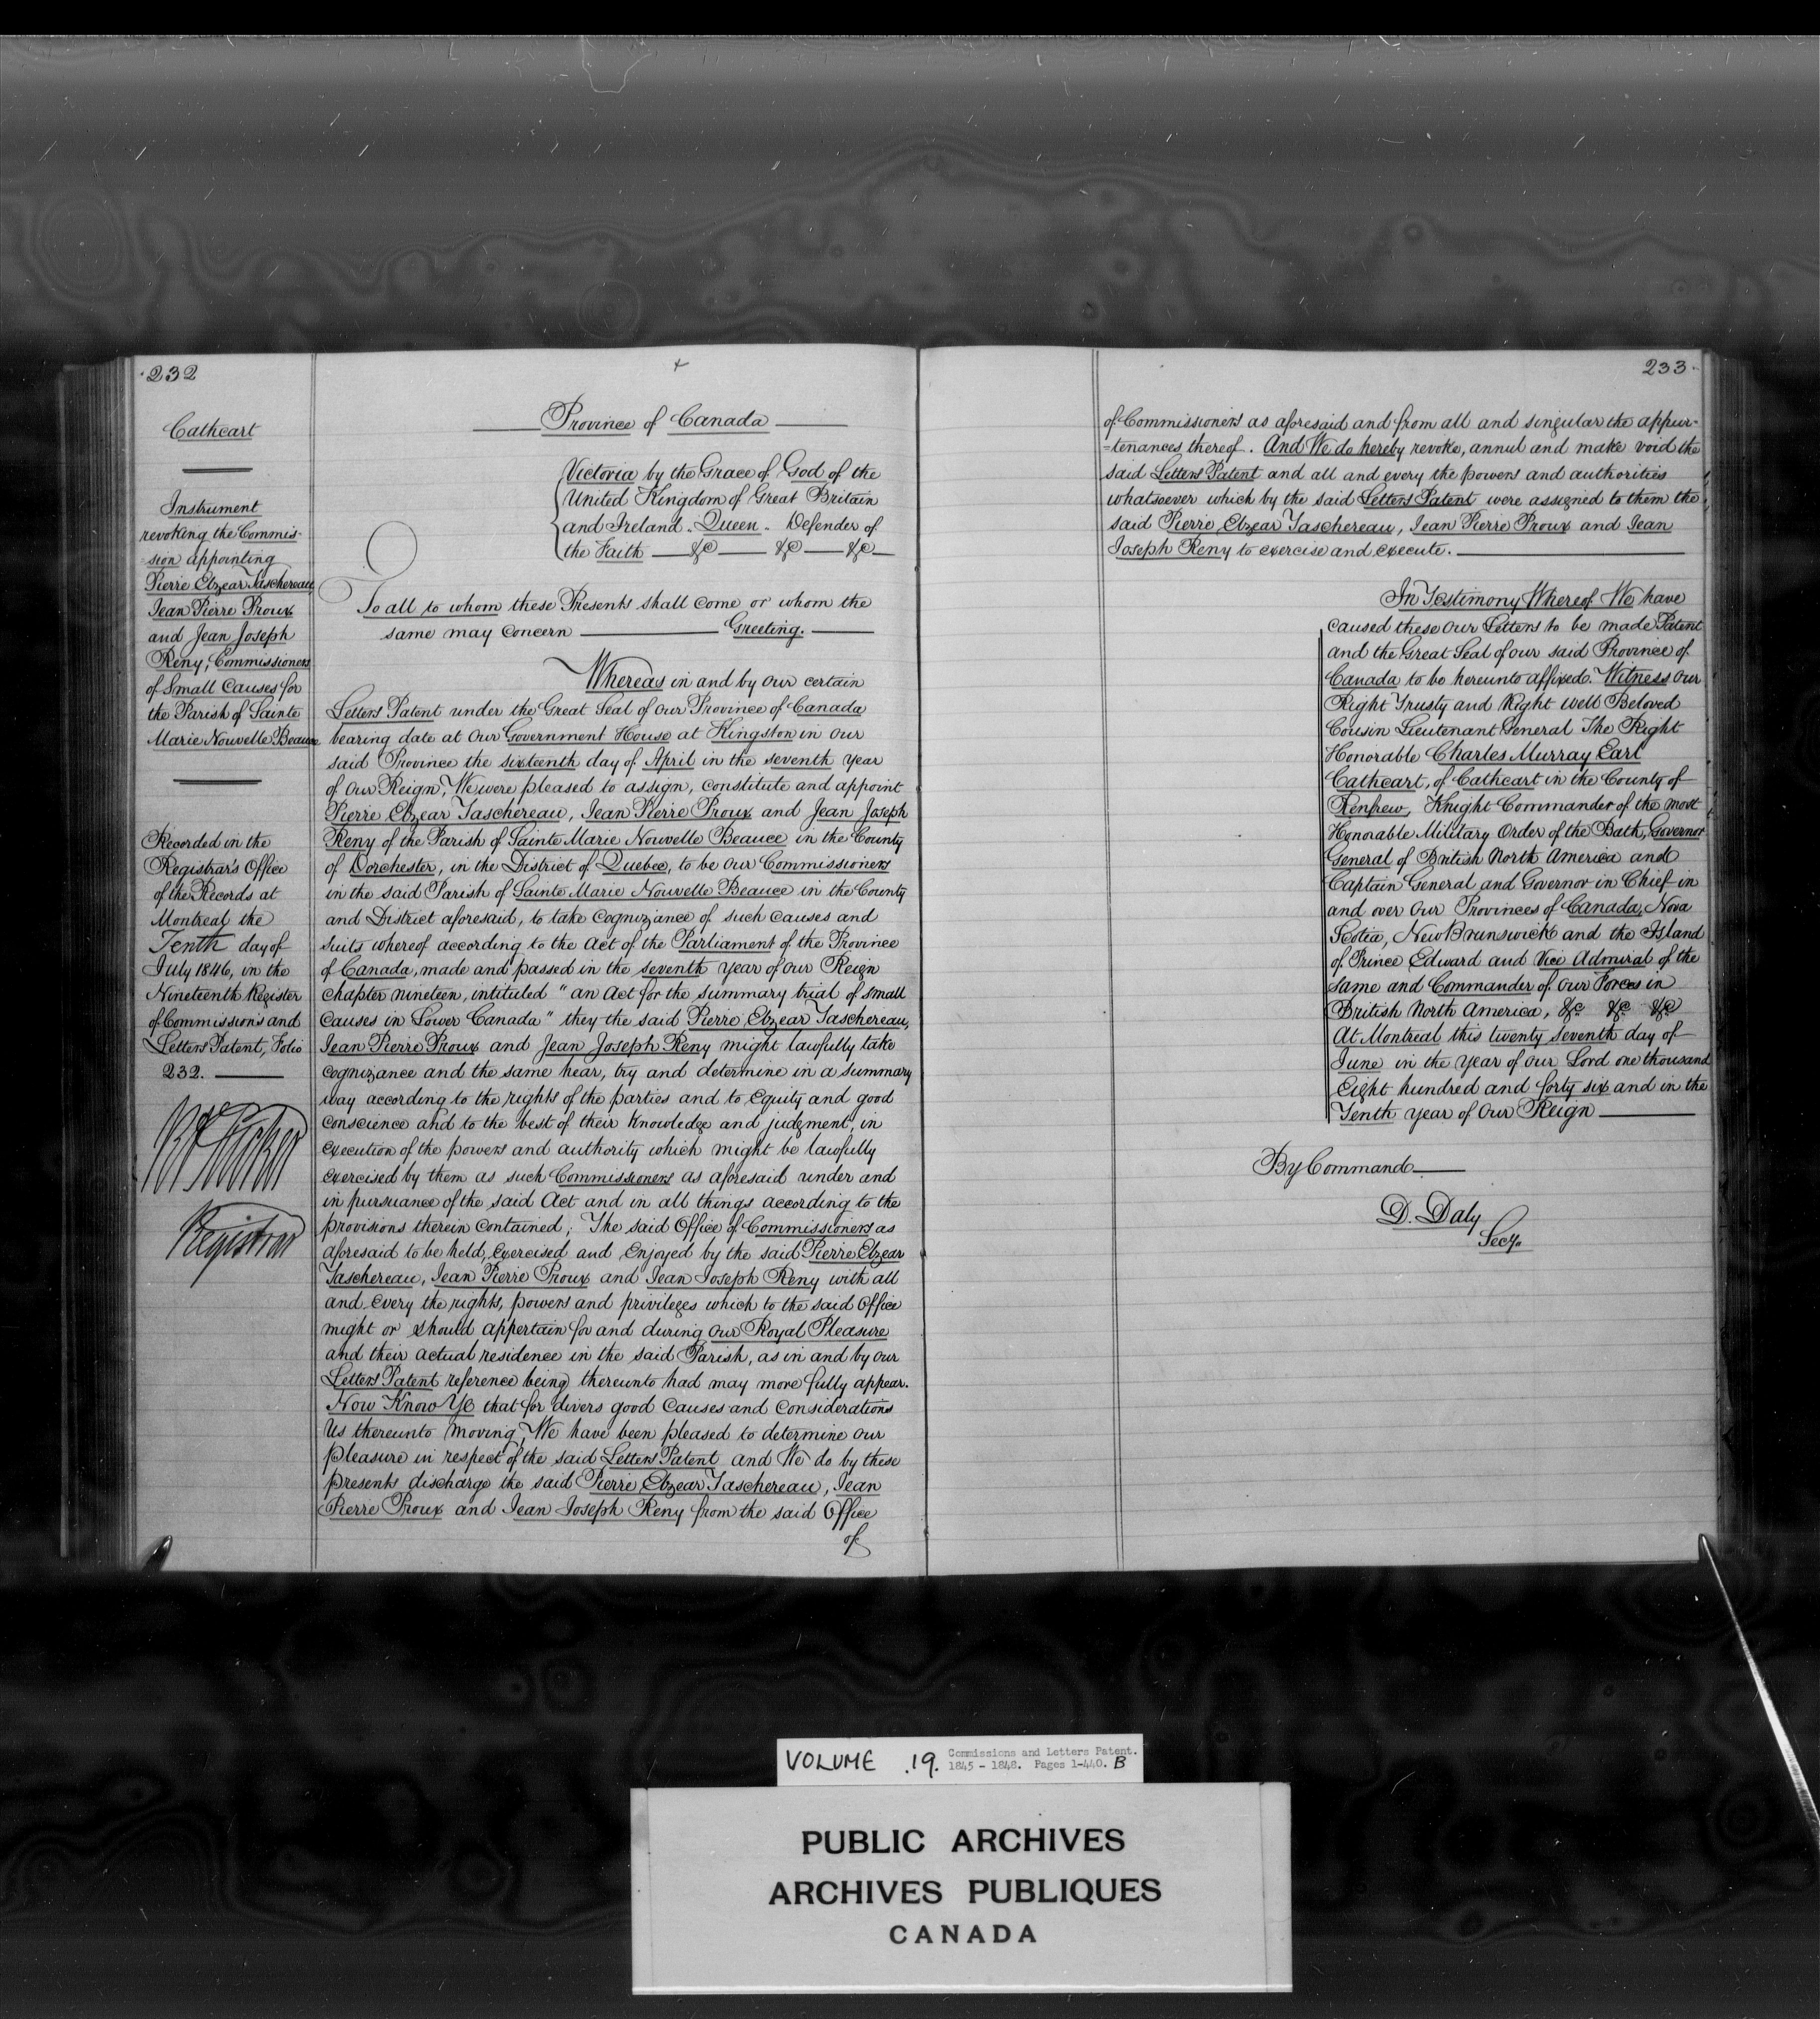 232
Cathcart
Instrument
revoking the Commis-
=sion appointing
Pierre Elzear Taschereau,
Jean Pierre Proux
and Jean Joseph
Reny, Commissioners
of Small Causes for
the Parish of Sainte
Marie Nouvelle Beauce
Recorded in the
Registrar's Office
of the Records at
Montreal the
Tenth day of
July 1846, in the
Nineteenth Register
of Commissions and
Letters Patent, Folio
232.
Registrar
Province of Canada
Victoria by the Grace of God of the
United Kingdom of Great Britain
and Ireland. Queen. Defender of
the Faith &c &c &c
To all to whom these Presents shall come or whom the
same may concern Greeting.
Whereas in and by our certain
Letters Patent under the Great Seal of our Province of Canada
bearing date at our Government House at Kingston in our
said Province the sixteenth day of April in the seventh year
of our Reign, We were pleased to assign, constitute and appoint
Pierre Elzear Taschereau, Jean Pierre Proux and Jean Joseph
Reny of the Parish of Sainte Marie Nouvelle Beauce in the County
of Dorchester, in the District of Quebec, to be our Commissioners
in the said Parish of Sainte Marie Nouvelle Beauce in the County
and District aforesaid, to take cognizance of such causes and
suits whereof according to the Act of the Parliament of the Province
of Canada, made and passed in the seventh year of our Reign
Chapter nineteen, intituled "an Act for the summary trial of small
causes in Lower Canada" they the said Pierre Elzear Taschereau,
Jean Pierre Proux and Jean Joseph Reny might lawfully take
cognizance and the same hear, try and determine in a summary
way according to the rights of the parties and to Equity and good
conscience and to the best of their knowledge and judgment, in
execution of the powers and authority which might be lawfully
exercised by them as such Commissioners as aforesaid under and
in pursuance of the said Act and in all things according to the
provisions therein contained; The said Office of Commissioners as
aforesaid to be held, exercised and enjoyed by the said Pierre Elzear
Taschereau, Jean Pierre Proux and Jean Joseph Reny with all
and every the rights, powers and privileges which to the said Office
might or should appertain for and during our Royal Pleasure
and their actual residence in the said Parish, as in and by our
Letters Patent reference being thereunto had may more fully appear.
Now Know Ye that for divers good causes and considerations
Us thereunto moving, We have been pleased to determine our
pleasure in respect of the said Letters Patent and We do by these
presents discharge the said Pierre Elzear Taschereau, Jean
Pierre Proux and Jean Joseph Reny from the said Office
of
233
of Commissioners as aforesaid and from all and singular the appur-
=tenances thereof. And We do hereby revoke, annul and make void the
said Letters Patent and all and every the powers and authorities
whatsoever which by the said Letters Patent were assigned to them the
said Pierre Elzear Taschereau, Jean Pierre Proux and Jean
Joseph Reny to exercise and execute.
In Testimony Whereof We have
caused these our Letters to be made Patent
and the Great Seal of our said Province of
Canada to be hereunto affixed. Witness our
Right Trusty and Right well Beloved
Cousin Lieutenant General The Right
Honorable Charles Murray Earl
Cathcart, of Cathcart in the County of
Renfrew, Knight Commander of the most
Honorable Military Order of the Bath, Governor
General of British North America and
Captain General and Governor in Chief in
and over our Provinces of Canada, Nova
Scotia, New Brunswick and the Island
of Prince Edward and Vice Admiral of the
same and Commander of our Forces in
British North America, &c &c &c
At Montreal this twenty seventh day of
June in the year of our Lord one thousand
Eight hundred and forty six and in the
Tenth year of our Reign
By Command
D. Daly
Secy.
VOLUME .19. Commissions and Letters Patent.
1845 - 1848. Pages 1-440. B
PUBLIC ARCHIVES
ARCHIVES PUBLIQUES
CANADA